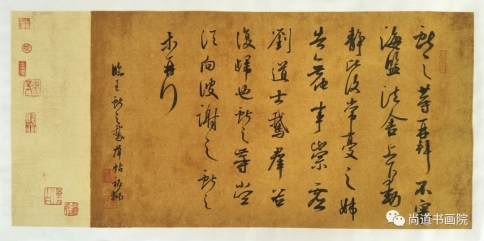 獻之等再拜不審
海鹽諸舍上下動
靜比復常憂之姊
告無它事崇虛
劉道士鵝羣並
復歸也獻之等當
須向彼謝之獻之
等再拜
臨王獻之鵝羣帖
尚道书画院